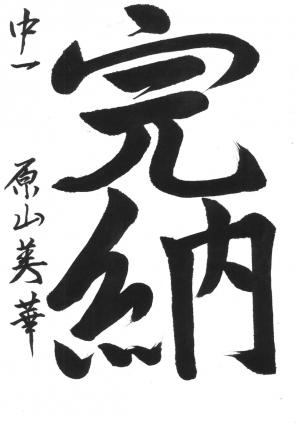 完納
中一 原山美華